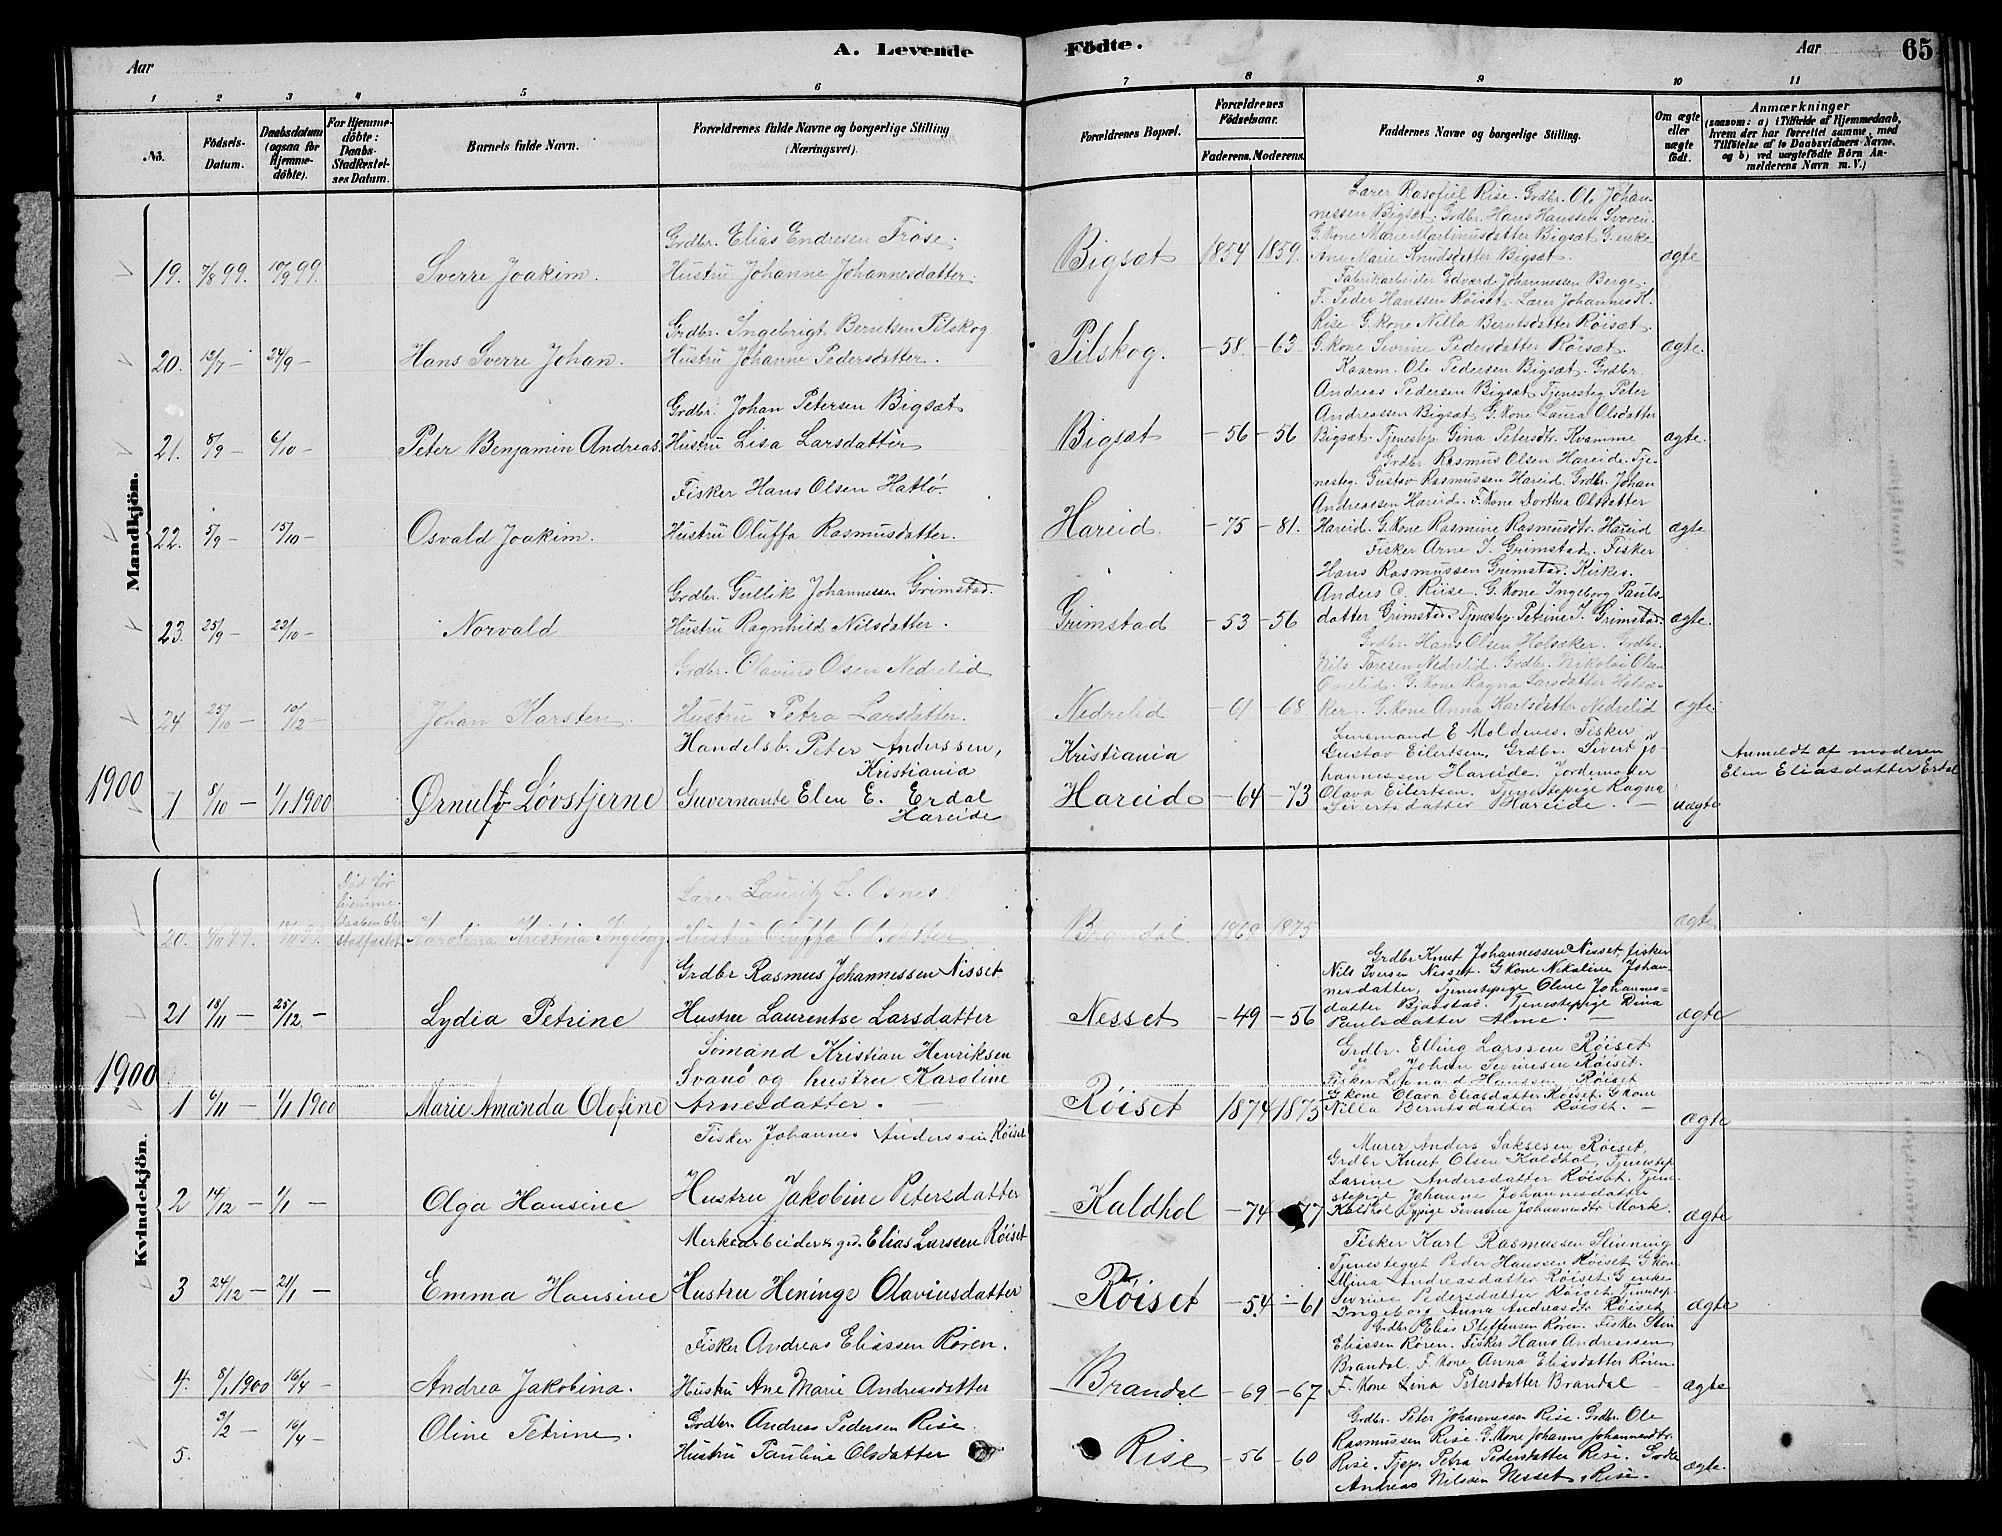 A. Levende Födte.
65
Aar
Aar
1 2 3 4 5 6 7 8 9 10 11
No.
Födsels-Datum.
Daabsdatum (ogsaa for Hjemme-döbte).
For Hjemme-döbte: Daabs-Stadfæstel-ses Datum.
Barnets fulde Navn.
Forældrenes fulde Navne og borgerlige Stilling (Næringsvei).
Forældrenes Bopæl.
Forældrenes Födselsaar.
Faderens. Moderens.
Faddernes Navne og borgerlige Stilling.
Om ægte eller uægte födt.
Anmærkninger
(saasom: a) i Tilfælde af Hjemmedaab, hvem der har forrettet samme, med Tilföielse af to Daabsvidners Navne, og b) ved uægtefödte Börn An-melderens Navn m. V.)
Mandkjön.
19. 7/8 99. 10/9 99. Sverre Joakim.
Grdbr. Elias Endresen Frøse.
Hustru Johanne Johannesdatter.
Bigsæt 1854 1859.
Lærer Rasofiel Rise. Grdbr. Ole Johan-
nessen Bigsæt. Grdbr. Hans Hanssen Svoren.
G. Kone Marie Martinusdatter Bigsæt G. enke
Ane Marie Knudsdatter Bigsæt.
ægte
20. 12/7 – 24/9 – Hans Sverre Johan.
Grdbr. Ingebrigt Berntsen Pilskog
Hustru Johanne Pedersdatter.
Pilskog. – 58 – 63.
Fabrikarbeider Edvard Johannessen Berge.
F. Peder Hanssen Røiset. Lærer Johannes K.
Rise G. Kone Nilla Berntsdatter Røisæt.
G. Kone Sevrine Pedersdatter Røisæt.
ægte.
21. 8/9 – 6/10 – Peter Benjamin Andreas.
Grdbr. Johan Petersen Bigsæt
Hustru Lisa Larsdatter
Bigsæt – 56 – 56
Kaarm. Ole Pedersen Bigsæt. Grdbr.
Andreas Pedersen Bigsæt Tjenesteg. Peter
Andreassen Bigsæt. G. Kone Laura Olsdatter
Bigsæt. Tjenestep. Gina Petersdtr. Kvamme
ægte.
22. 5/9 – 15/10 – Osvald Joakim.
Fisker Hans Olsen Hatlø.
Hustru Oluffa Rasmusdatter.
Hareid. – 75 – 81.
Grdbr. Rasmus Olsen Hareide. Tje-
nesteg. Gustav Rasmussen Hareid. Grdbr. Johan
Andreassen Hareid. F. Kone Dorthea Olsdatter
Hareid. G. Kone Rasmine Rasmusdtr. Hareid
ægte
23. 25/9 – 22/10 – Norvald
Grdbr. Gullik Johannessen Grimstad.
Hustru Ragnhild Nilsdatter.
Grimstad – 53 – 56
Fisker Arne J. Grimstad. Fisker
Hans Rasmussen Grimstad. Kirkes.
Anders O. Riise. G. Kone Ingeborg Pauls-
datter Grimstad. Tjenestep. Petrine J. Grimstad.
ægte.
24 25/10 – 10/12 – Johan Karsten.
Grdbr. Olavius Olsen Nedrelid
Hustru Petra Larsdatter.
Nedrelid – 61 68.
Grdbr. Hans Olsen Holsæker. Grdbr.
Nils Taresen Nedrelid. Grdbr. Nikolai Olsen
Overlid. G. Kone Ragna Larsdatter Holsæ-
ker. G. Kone Anna Karlsdatter Nedrelid
ægte
1900
1 8/10 – 1/1 1900 Ørnulf Løvstjerne
Handelsb. Peter Anderssen,
Kristiania
Guvernante Elen E. Erdal
Hareide
Kristiania
Hareide – 64 – 73
Lensmand E Moldenes. Fisker
Gustav Eilertsen, Grdbr. Sivert Jo-
hannessen Hareide. Jordemoder
Olava Eilertsen. Tjenestepige Ragna
Sivertsdatter Hareide. –
uægte
Anmeldt af moderen
Elen Eliasdatter Erdal
1900
Kvindekjön.
20. 99. Død før hjemme-daaben ble stadfæstet
Karolina Kristina Ingeborg.
Lærer Lauritz L. Osnes.
Hustru Oluffa Olsdatter
Brandal 1869 1875
ægte
21 18/11 – 25/12 – Lydia Petrine
Grdbr Rasmus Johannessen Nisset
Hustru Laurentse Larsdatter
Nesset – 49 – 56
Grdbr Knut Johannessen Nisset, fisker
Nils Iversen Nisset. G Kone Nikoline Johan-
nesdatter, Tjenestepige Oline Johannes-
datter Bjaastad. Tjenestepige Dina
Paulsdatter Alme. –
ægte
1 6/11 – 1/1 1900 Marie Amanda Olofine
Sømand Kristian Henriksen
Svanø og hustru Karoline
Arnesdatter. –
Røiset 1874 1875
Grdbr. Elling Larssen Røiset
Johan Røiset.
Fisker Leonard Hanssen Røiset
G Kone Olava Eliasdatter Røiset. G Kone
Nilla Berntsdatter Røiset. –
ægte
2 14/12 – 1/1 – Olga Hansine
Fisker Johannes Anderssen Røiset
Hustru Jakobine Petersdatter
Kaldhol – 74 – 77
Murer Anders Saksesen Røiset,
Grdbr Knut Olsen Kaldhol, Tjenestep
Larine Andersdatter Røiset. Tjene-
stepige Johanne Johannesdatter
Kaldhol Severine Johannesdtr Mork.
ægte
3 24/12 – 21/1 – Emma Hansine
Elias Larssen Røiset
Hustru Heninge Olaviusdatter
Røiset – 54 – 61
Fisker Karl Rasmussen Slinning
Tjenestegut Peder Hanssen Røiset G Kone
Mina Andreasdatter Røiset. G enke
Sevrine Pedersdatter Røiset Tjenestep
Ingeborg Anna Andreasdtr Røiset
ægte
4. 8/1 1900 16/4 – Andrea Jakobina.
Fisker Andreas Eliassen Røren.
Hustru Ane Marie Andreasdatter
Brandal – 69 – 67
Grdbr. Elias Steffensen Røren. Fisker Sten
Eliassen Røren. Fisker Hans Andreassen
Brandal. F. Kone Anna Eliasdatter Røren
F. Kone Lina Petersdatter Brandal
ægte
5. 3/2 – 16/4 – Oline Petrine.
Grdbr. Andreas Pedersen Rise
Hustru Pauline Olsdatter
Rise – 56 – 60
Grdbr. Peter Johannessen Rise. Grdbr. Ole
Rasmussen Rise. G. Kone Johanne Johannesdtr.
Rise. Tjep. Petra Pedersdatter Rise. Grdbr
Andreas Nilsen Nesset, Rise.
ægte.